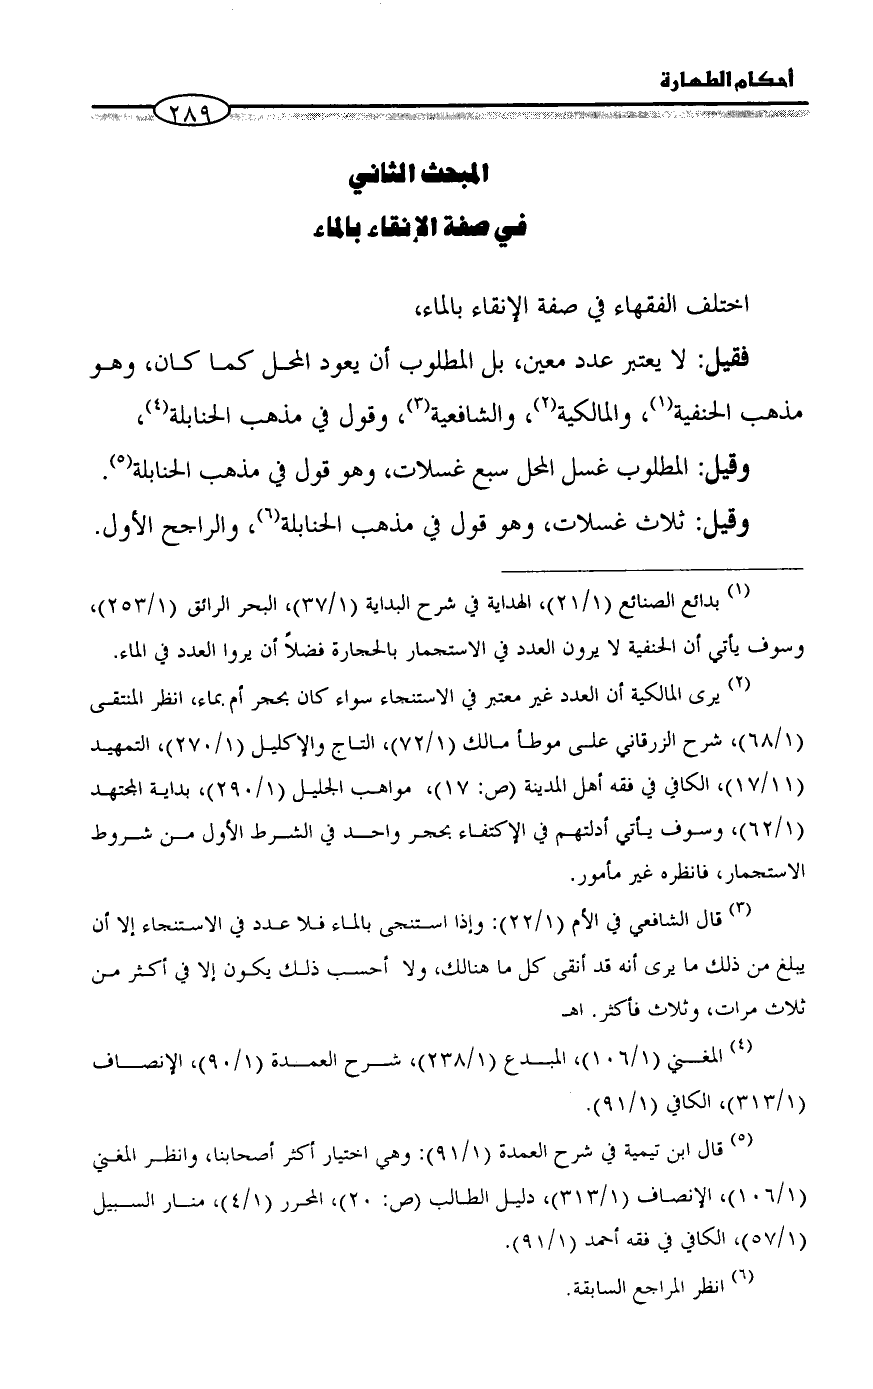 أحكام الطهارة
٢٨٩
المبحث الثاني
في صفة الإنقاء بالماء
اختلف الفقهاء في صفة الإنقاء بالماء،
فقيل: لا يعتبر عدد معين، بل المطلوب أن يعود المحل كما كان، وهو
مذهب الحنفية(١)، والمالكية(٢)، والشافعية(٣)، وقول في مذهب الحنابلة(٤)،
وقيل: المطلوب غسل المحل سبع غسلات، وهو قول في مذهب الحنابلة(٥).
وقيل: ثلاث غسلات، وهو قول في مذهب الحنابلة(٦)، والراجح الأول.
(١) بدائع الصنائع (٢١/١)، الهداية في شرح البداية (٣٧/١)، البحر الرائق (٢٥٣/١)،
وسوف يأتي أن الحنفية لا يرون العدد في الاستجمار بالحجارة فضلاً أن يروا العدد في الماء.
(٢) يرى المالكية أن العدد غير معتبر في الاستنجاء سواء كان بحجر أم بماء، انظر المنتقى
(٦٨/١)، شرح الزرقاني على موطأ مالك (٧٢/١)، التاج والإكليل (٢٧٠/١)، التمهيد
(١٧/١١)، الكافي في فقه أهل المدينة (ص: ١٧)، مواهب الجليل (٢٩٠/١)، بداية المجتهد
(٦٢/١)، وسوف يأتي أدلتهم في الإكتفاء بحجر واحد في الشرط الأول من شروط
الاستجمار، فانظره غير مأمور.
(٣) قال الشافعي في الأم (٢٢/١): وإذا استنجى بالماء فلا عدد في الاستنجاء إلا أن
يبلغ من ذلك ما يرى أنه قد أنقى كل ما هنالك، ولا أحسب ذلك يكون إلا في أكثر من
ثلاث مرات، وثلاث فأكثر. اهـ
(٤) المغني (١٠٦/١)، المبدع (٢٣٨/١)، شرح العمدة (٩٠/١)، الإنصاف
(٣١٣/١)، الكافي (٩١/١).
(٥) قال ابن تيمية في شرح العمدة (٩١/١): وهي اختيار أكثر أصحابنا، وانظر المغني
(١٠٦/١)، الإنصاف (٣١٣/١)، دليل الطالب (ص: ٢٠)، المحرر (٤/١)، منار السبيل
(٥٧/١)، الكافي في فقه أحمد (٩١/١).
(٦) انظر المراجع السابقة.